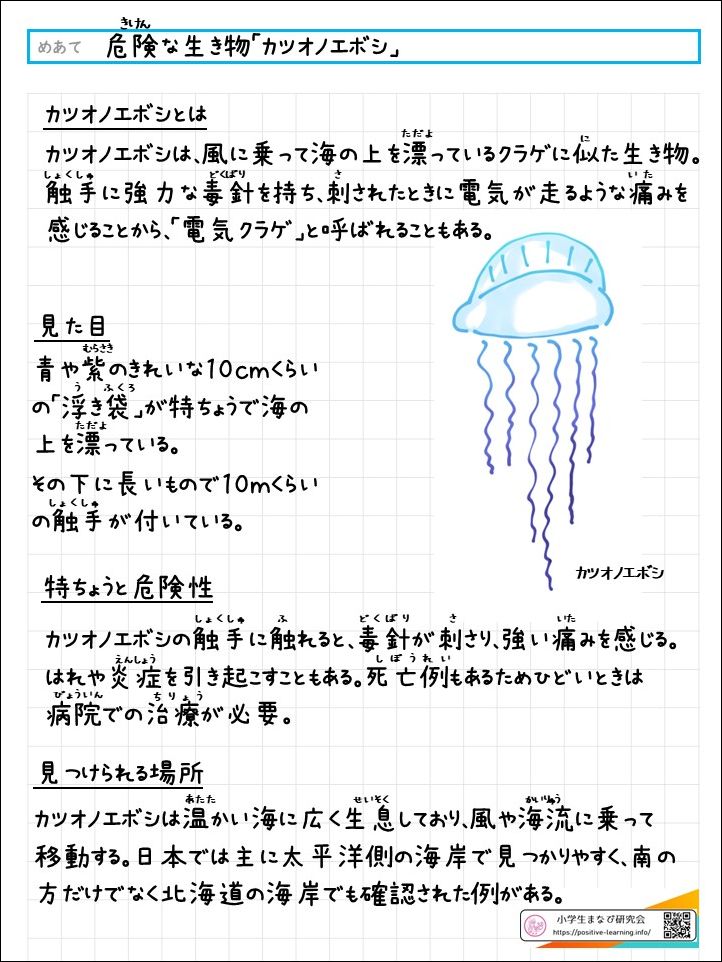 めあて 危険な生き物「カツオノエボシ」
きけん
カツオノエボシとは
ただよ に
カツオノエボシは、風に乗って海の上を漂っているクラゲに似た生き物。
しょくしゅ どくばり さ いた
触手に強力な毒針を持ち、刺されたときに電気が走るような痛みを
感じることから、「電気クラゲ」と呼ばれることもある。
見た目
むらさき
青や紫のきれいな10cmくらい
う ふくろ
の「浮き袋」が特ちょうで海の
ただよ
上を漂っている。
その下に長いもので10mくらい
しょくしゅ
の触手が付いている。
カツオノエボシ
特ちょうと危険性
しょくしゅ ふ どくばり さ いた
カツオノエボシの触手に触れると、毒針が刺さり、強い痛みを感じる。
えんしょう しぼうれい
はれや炎症を引き起こすこともある。死亡例もあるためひどいときは
びょういん ちりょう
病院での治療が必要。
見つけられる場所
あたた せいそく かいりゅう
カツオノエボシは温かい海に広く生息しており、風や海流に乗って
移動する。日本では主に太平洋側の海岸で見つかりやすく、南の
方だけでなく北海道の海岸でも確認された例がある。
小学生まなび研究会
https://positive-learning.info/